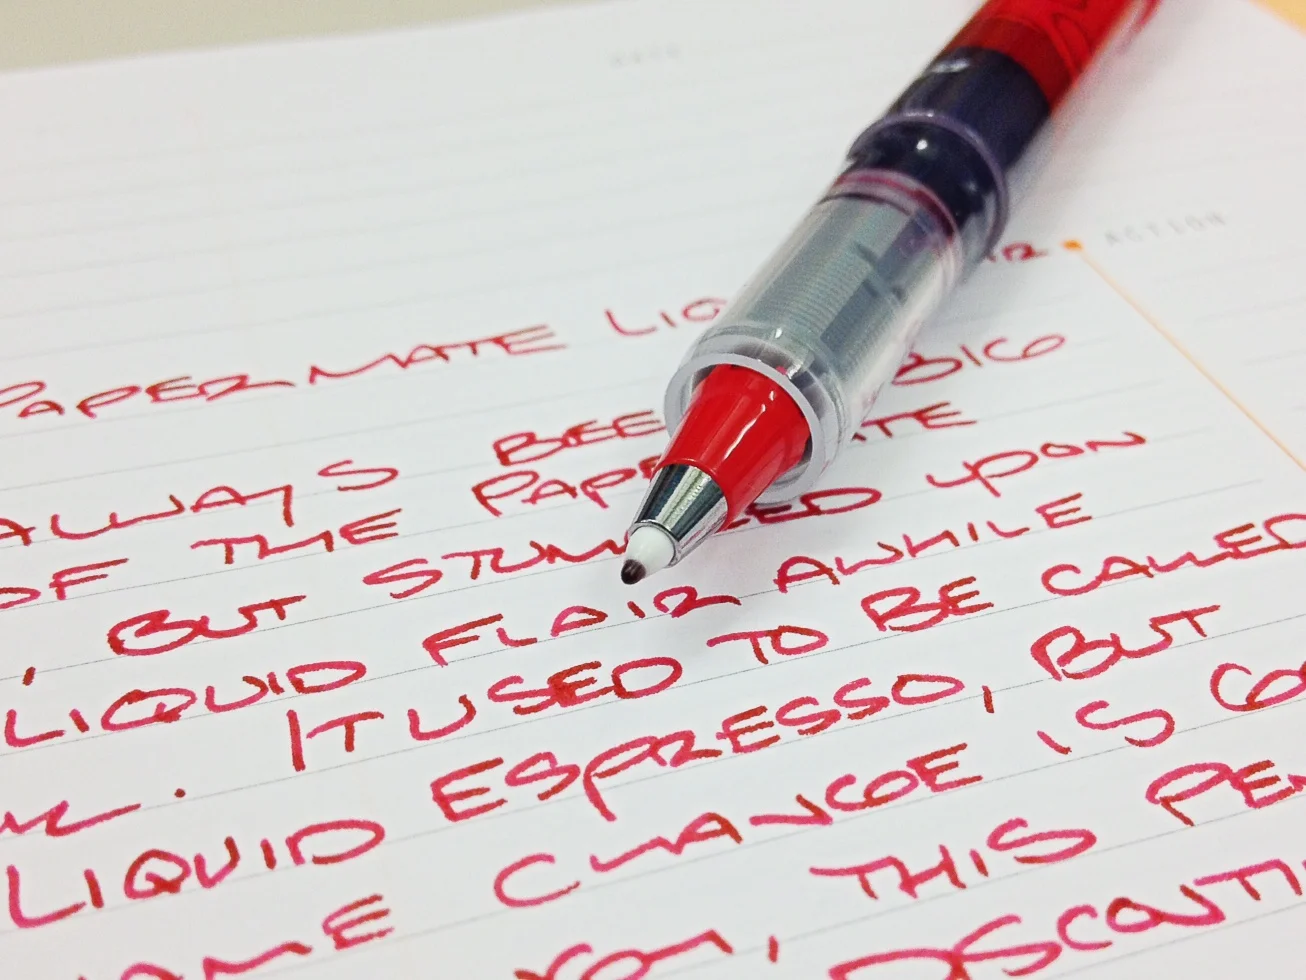 DATE
ACTION
PAPERMATE LIQ IR
ALWAYS BEE BIG
OF THE PAPE TE
, BUT STUM ED UPON
LIQUID FLAIR AWHILE
. IT USED TO BE CALLED
LIQUID ESPRESSO, BUT
AME CHANGE IS GO
, THIS PEN
DISCONTI